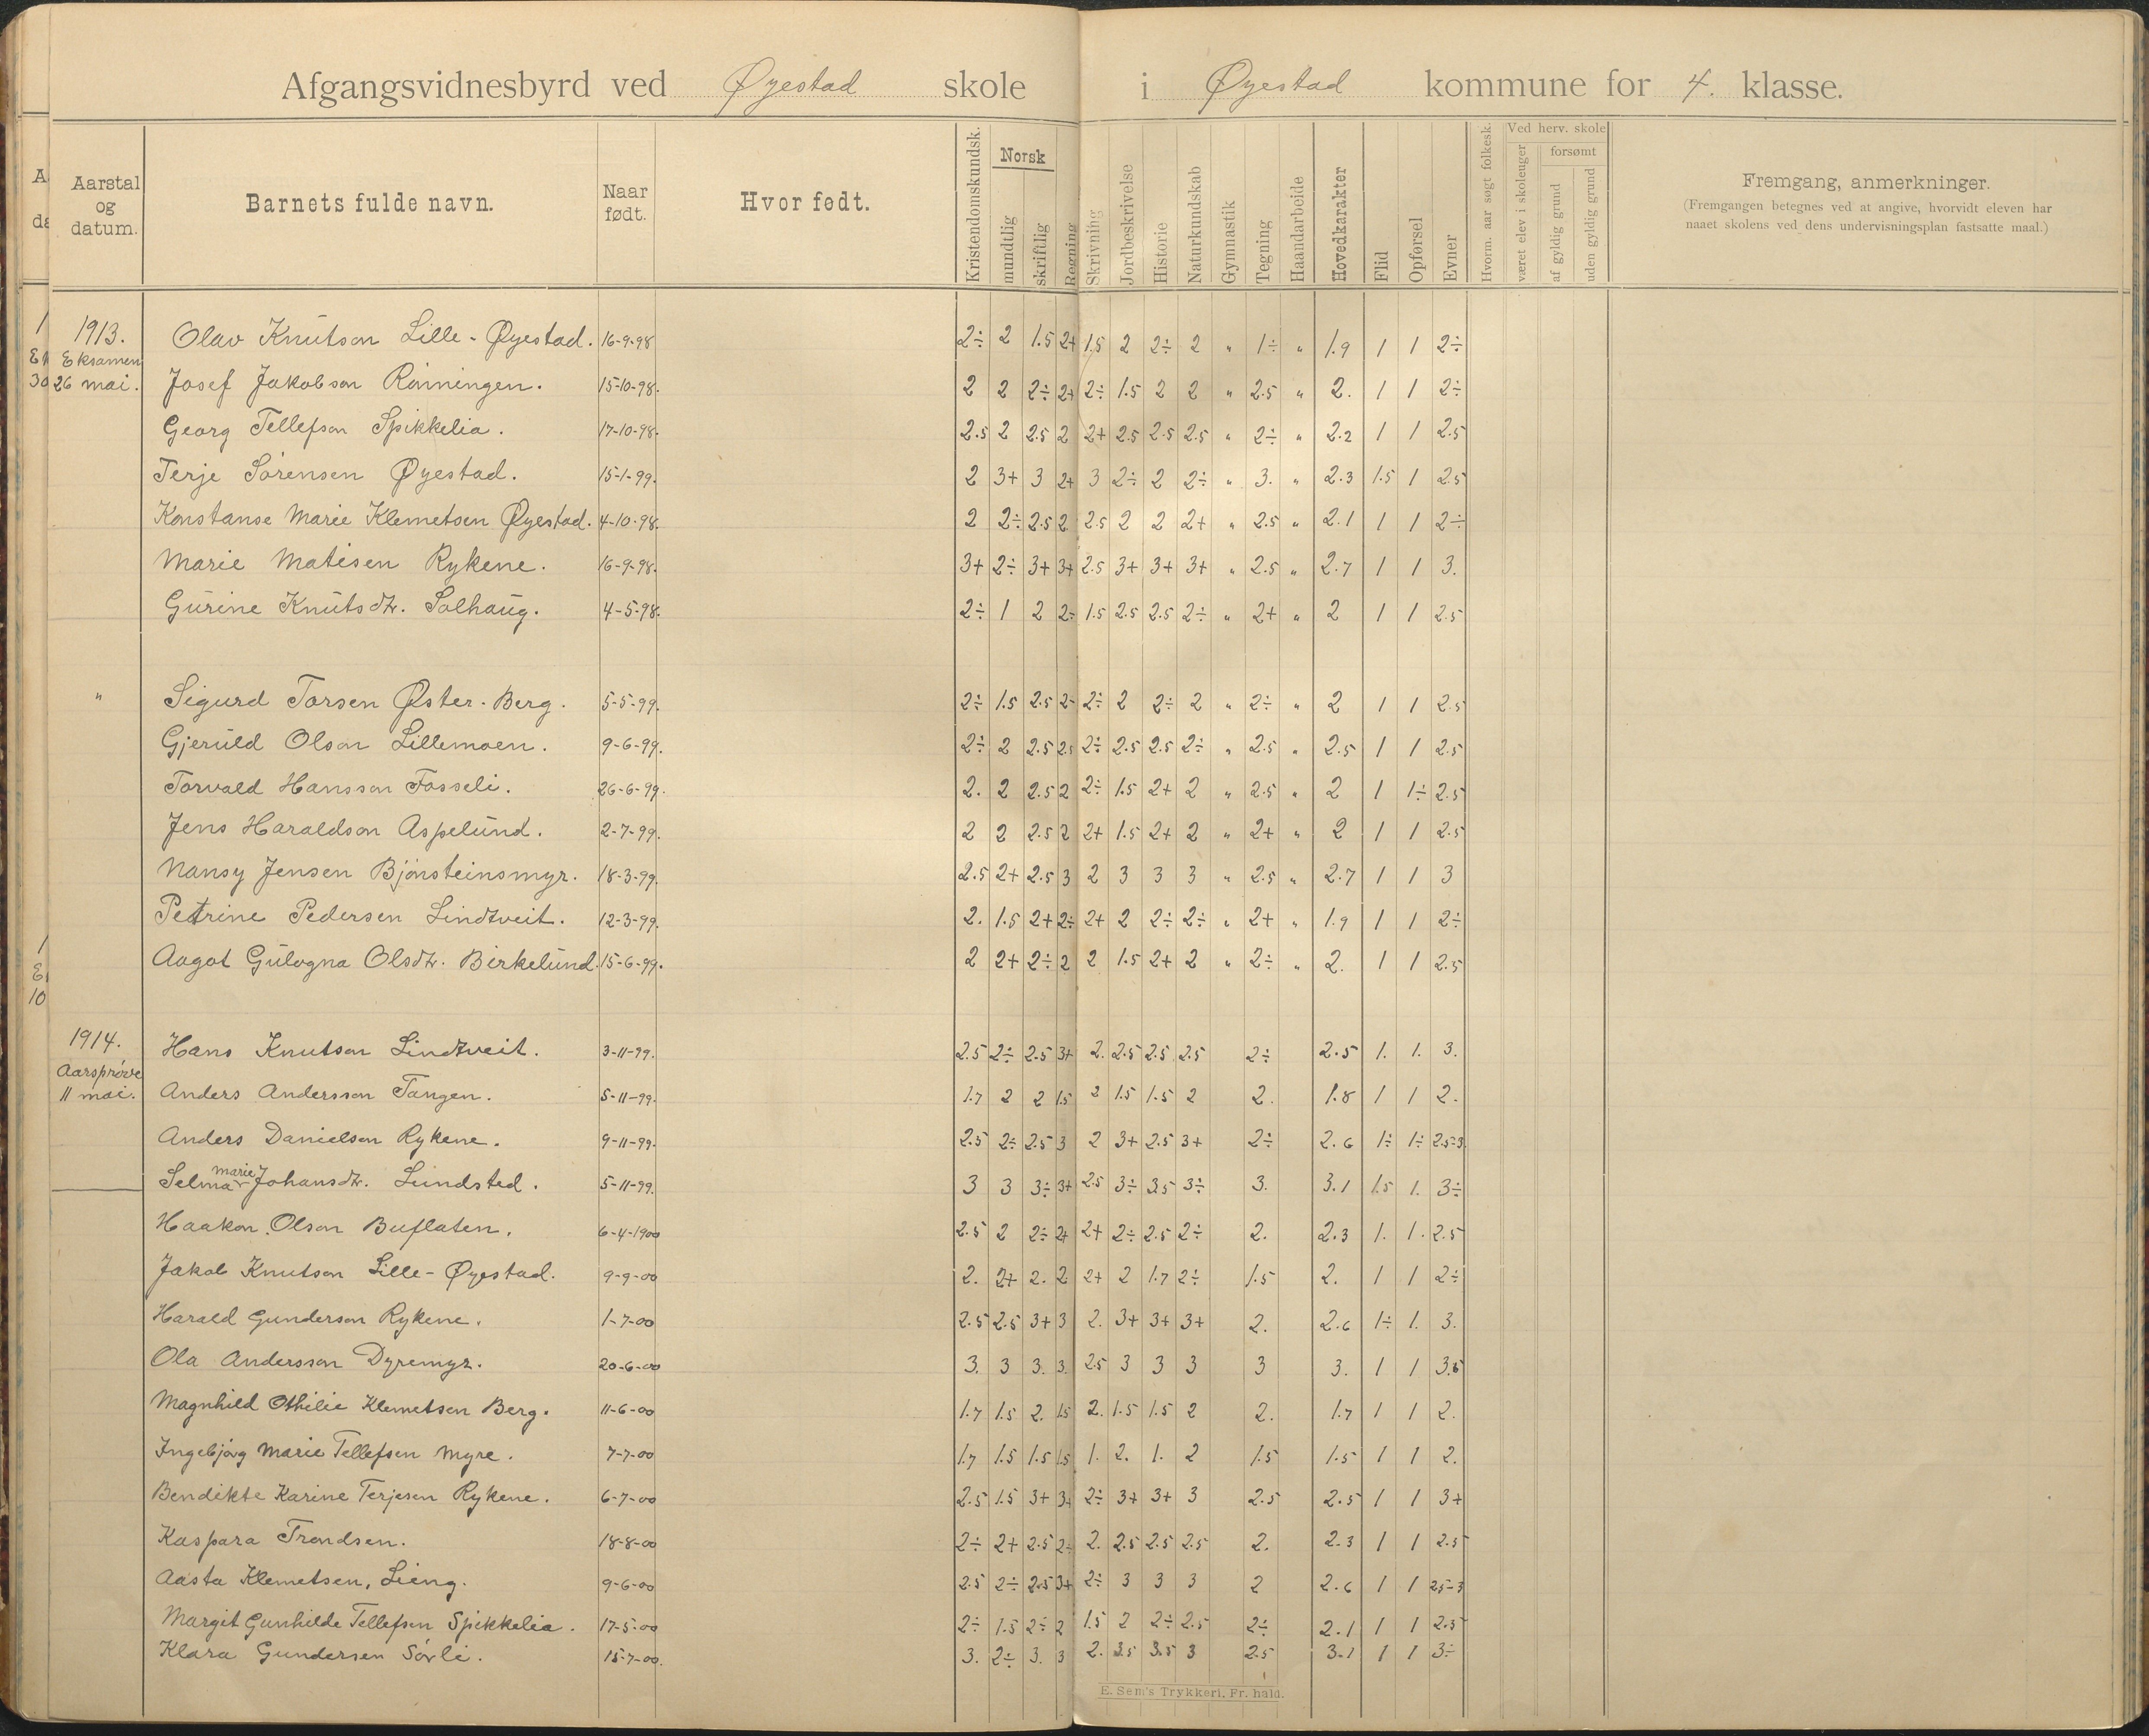 Afgangsvidnesbyrd ved Øyestad skole i Øyestad kommune for 4. klasse.
Aarstal og datum.
Barnets fulde navn.
Naar født.
Hvor født.
Kristendomskundsk.
Norsk
mundtlig
skriftlig
Regning
Skrivning
Jordbeskrivelse
Historie
Naturkundskab
Gymnastik
Tegning
Haandarbeide
Hovedkarakter
Flid
Opførsel
Evner
Hvorm. aar søgt folkesk.
Ved herv. skole
været elev i skoleuger
forsømt
af gyldig grund
uden gyldig grund
Fremgang, anmerkninger.
(Fremgangen betegnes ved at angive, hvorvidt eleven har
naaet skolens ved dens undervisningsplan fastsatte maal.)
1913.
Eksamen
26 mai.
Olav Knutson Lille-Øyestad. 16-9-98 2÷ 2 1.5 2+ 1.5 2 2÷ 2 " 1÷ " 1.9 1 1 2÷
Josef Jakobson Rønningen. 15-10-98. 2 2 2÷ 2+ 2÷ 1.5 2 2 " 2.5 " 2. 1 1 2÷
Georg Tellefson Spikkelia. 17-10-98. 2.5 2 2.5 2 2+ 2.5 2.5 2.5 " 2÷ " 2.2 1 1 2.5
Terje Sørensen Øyestad. 15-1-99. 2 3+ 3 2+ 3 2÷ 2 2÷ " 3. " 2.3 1.5 1 2.5
Konstanse Marie Klemetsen Øyestad. 4-10-98. 2 2÷ 2.5 2 2.5 2 2 2+ " 2.5 " 2.1 1 1 2÷
Marie Matisen Rykene. 16-9-98. 3+ 2÷ 3+ 3+ 2.5 3+ 3+ 3+ " 2.5 " 2.7 1 1 3.
Gurine Knutsdtr. Solhaug. 4-5-98. 2÷ 1 2 2÷ 1.5 2.5 2.5 2÷ " 2+ " 2 1 1 2.5
" Sigurd Torsen Øster-Berg. 5-5-99. 2÷ 1.5 2.5 2÷ 2÷ 2 2÷ 2 " 2÷ " 2 1 1 2.5
Gjeruld Olson Lillemoen. 9-6-99. 2÷ 2 2.5 2.5 2÷ 2.5 2.5 2÷ " 2.5 " 2.5 1 1 2.5
Torvald Hansson Fosseli. 26-6-99. 2. 2 2.5 2 2÷ 1.5 2+ 2 " 2.5 " 2 1 1÷ 2.5
Jens Haraldson Aspelund. 2-7-99. 2 2 2.5 2 2+ 1.5 2+ 2 " 2+ " 2 1 1 2.5
Nansy Jensen Bjønsteinsmyr. 18-3-99. 2.5 2+ 2.5 3 2 3 3 3 " 2.5 " 2.7 1 1 3
Petrine Pedersen Lindtveit. 12-3-99. 2. 1.5 2+ 2÷ 2+ 2 2÷ 2÷ " 2+ " 1.9 1 1 2÷
Aagot Gulogna Olsdtr. Birkelund. 15-6-99. 2 2+ 2÷ 2 2 1.5 2+ 2 " 2÷ " 2. 1 1 2.5
1914.
Aarsprøve
11 mai.
Hans Knutson Lindtveit. 3-11-99. 2.5 2÷ 2.5 3+ 2. 2.5 2.5 2.5 2÷ 2.5 1. 1. 3.
Anders Andersson Tangen. 5-11-99. 1.7 2 2 1.5 2 1.5 1.5 2 2. 1.8 1 1 2.
Anders Danielson Rykene. 9-11-99. 2.5 2÷ 2.5 3 2 3+ 2.5 3+ 2÷ 2.6 1÷ 1÷ 2.5-3.
Selma Marie Johansdtr. Lundsted. 5-11-99. 3 3 3÷ 3+ 2.5 3÷ 3.5 3÷ 3. 3.1 1.5 1. 3÷
Haakon Olson Buflaten. 6-4-1900 2.5 2 2÷ 2+ 2+ 2÷ 2.5 2÷ 2. 2.3 1. 1. 2.5
Jakob Knutson Lille-Øyestad. 9-9-00 2. 2+ 2. 2 2+ 2 1.7 2÷ 1.5 2. 1 1 2÷
Harald Gunderson Rykene. 1-7-00 2.5 2.5 3+ 3 2. 3+ 3+ 3+ 2. 2.6 1÷ 1. 3.
Ola Andersson Dyremyr. 20-6-00 3. 3 3. 3. 2.5 3 3 3 3 3. 1 1 3.5
Magnhild Othilie Klemetsen Berg. 11-6-00 1.7 1.5 2. 1.5 2. 1.5 1.5 2 2. 1.7 1 1 2.
Ingebjørg Marie Tellefsen Myre. 7-7-00 1.7 1.5 1.5 1.5 1. 2. 1. 2 1.5 1.5 1 1 2.
Bendikte Karine Terjesen Rykene. 6-7-00 2.5 1.5 3+ 3+ 2÷ 3+ 3+ 3 2.5 2.5 1 1 3+
Kaspara Trondsen. 18-8-00 2÷ 2+ 2.5 2÷ 2. 2.5 2.5 2.5 2. 2.3 1 1 2.5
Aasta Klemetsen, Lieng. 9-6-00 2.5 2÷ 2.5 3+ 2÷ 3 3 3 2 2.6 1 1 2.5-3
Margit Gunhilde Tellefsen Spikkelia. 17-5-00 2÷ 1.5 2÷ 2 1.5 2 2÷ 2.5 2÷ 2.1 1 1 2.5
Klara Gundersen Sørli. 15-7-00. 3. 2÷ 3. 3 2. 3.5 3.5 3 2.5 3.1 1 1 3÷
E. Sem's Trykkeri, Fr. hald.